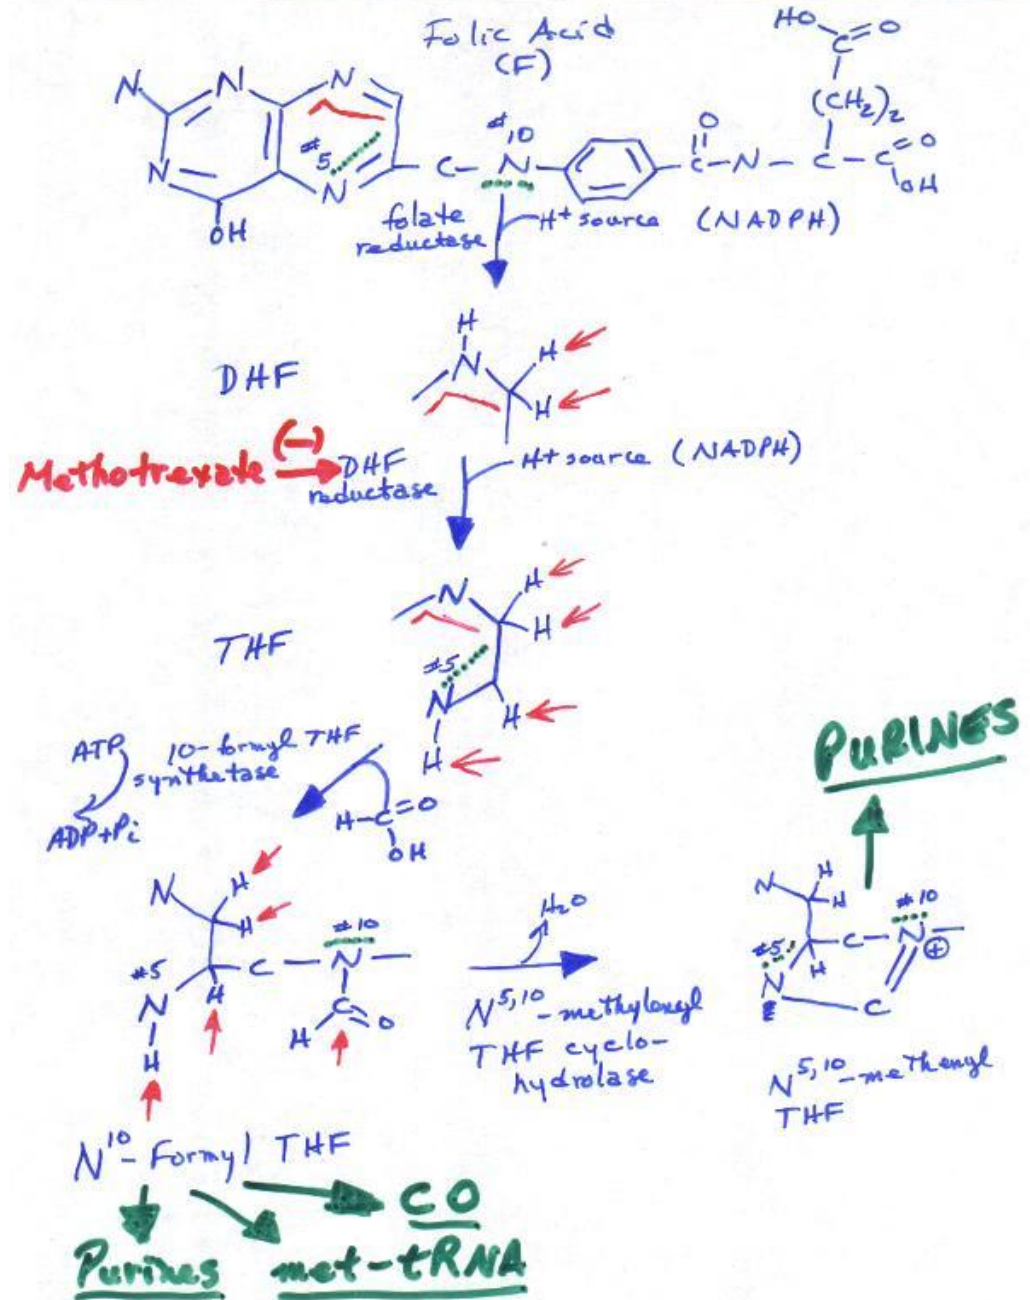 Folic Acid
(F)
HO
C=O
(CH2)2
N
N
N
#10
O
#5
N
N
C-N
C-N-C-C=O
OH
OH
folate
reductase
H+ source (NADPH)
H
N
H
H
DHF
(-)
Methotrexate
DHF
reductase
H+ source (NADPH)
N
H
H
THF
#5
N
H
H
ATP
10-formyl THF
synthetase
ADP+Pi
H-C=O
OH
PURINES
N
H
H
#10
#5
C-N
N
H
C
H
O
H
H2O
N5,10-methylenyl
THF cyclo-
hydrolase
N
H
H
#10
#5
C-N
+
H
N
C
N5,10-methenyl
THF
N10-Formyl THF
CO
Purines
met-tRNA